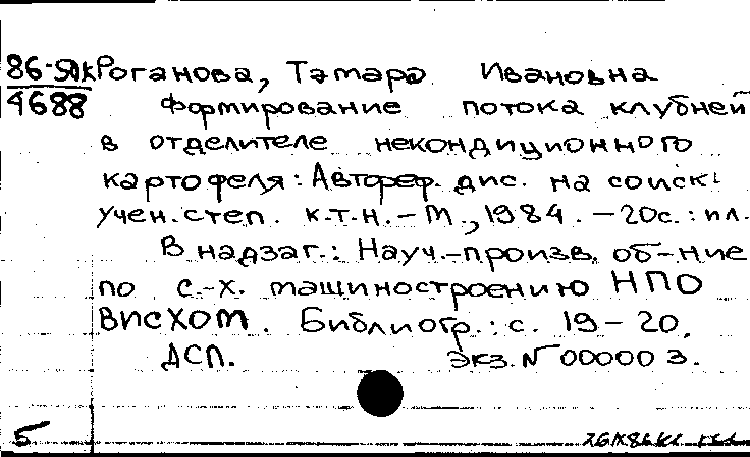 86-5ДК Роганова, Тамара Ивановна
4688 Формирование потока клубней
в отделителе некондиционного
картофеля: Автореф. дис. на соиск.
учен. степ. к.т.н. – М., 1984. – 20с.: ил.
В надзаг.: Науч.-произв. об-ние
по с.-х. машиностроению НПО
ВИСХОМ. Библиогр.: с. 19 – 20.
ДСП. Экз. № 00000 3.
5